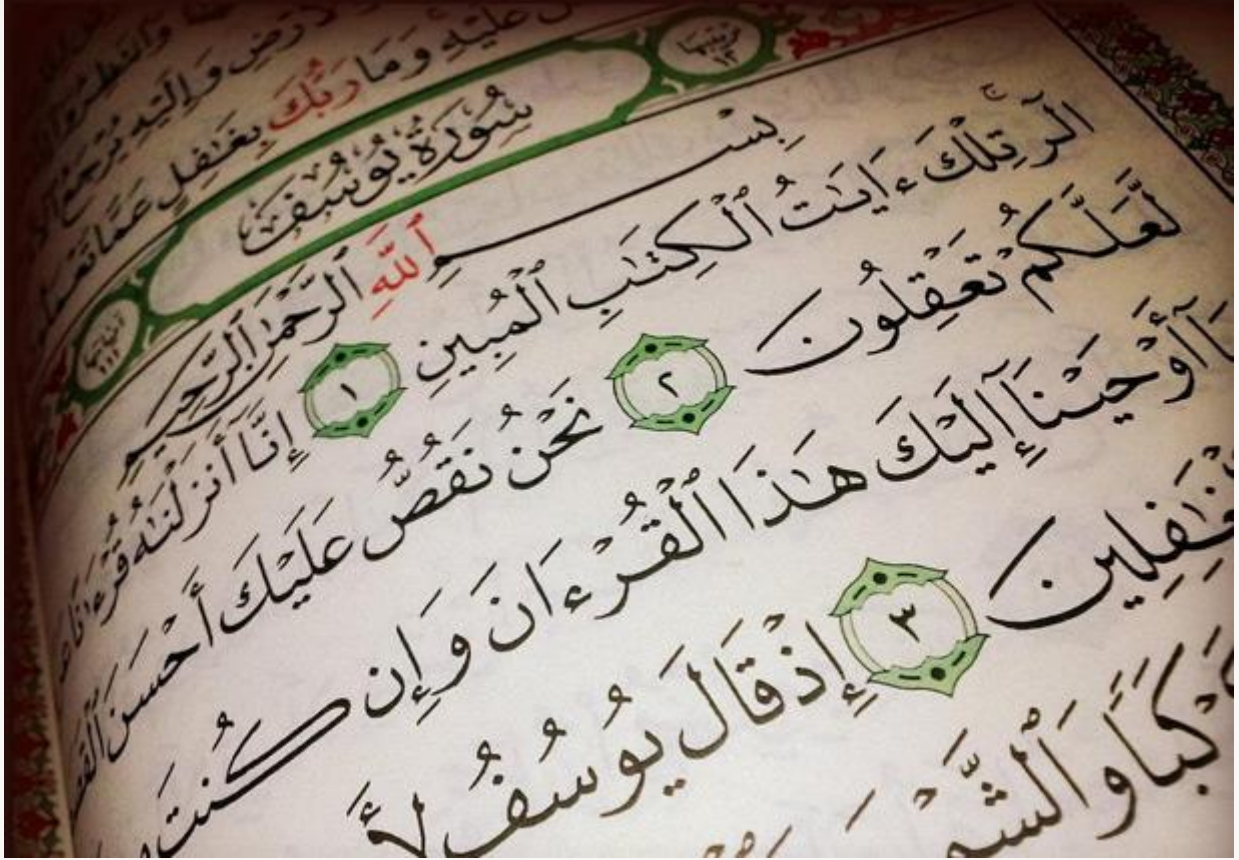 وَانتَظِرُوا
رْضِ وَإِلَيْهِ يُرْجَعُ
عَلَيْهِ وَمَا رَبُّكَ بِغَٰفِلٍ عَمَّا تَعْمَ
سُورَةُ يُوسُفَ
بِسْمِ ٱللَّهِ ٱلرَّحْمَٰنِ ٱلرَّحِيمِ
الٓر تِلْكَ ءَايَٰتُ ٱلْكِتَٰبِ ٱلْمُبِينِ ١ إِنَّآ أَنزَلْنَٰهُ قُرْءَٰنًا عَ
لَّعَلَّكُمْ تَعْقِلُونَ ٢ نَحْنُ نَقُصُّ عَلَيْكَ أَحْسَنَ ٱلْقَصَ
َآ أَوْحَيْنَآ إِلَيْكَ هَٰذَا ٱلْقُرْءَانَ وَإِن كُنتَ مِ
غَٰفِلِينَ ٣ إِذْ قَالَ يُوسُفُ لِأَ
كَبًا وَٱلشَّمْ